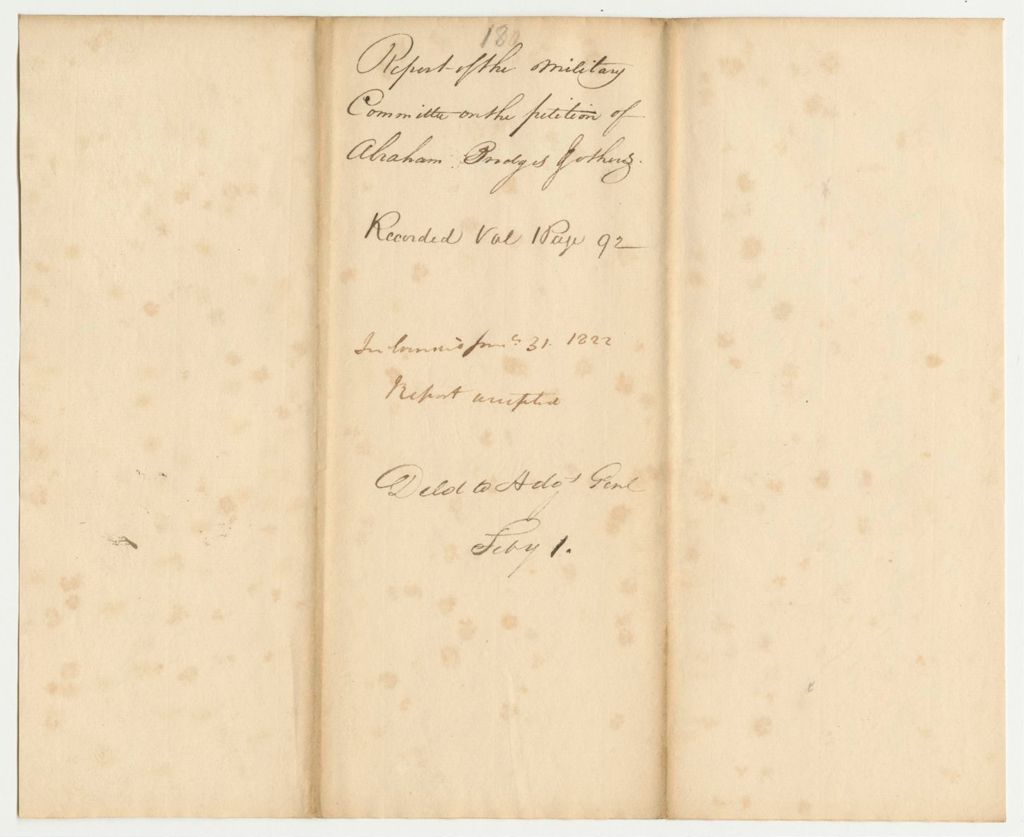 Report of the Military
Committe on the petition of
Abraham Bridges & others.
Recorded Vol 1 Page 92
In Council Jany 31. 1822
Report accepted
Deld to Adjt Genl
Feby 1.